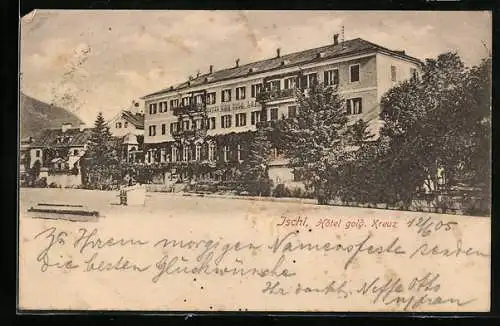 Ischl, Hôtel gold. Kreuz.
12/6 05
Zu Ihrem morgigen Namensfeste senden
die besten Glückwünsche
Ihr dankb. Neffe Otto